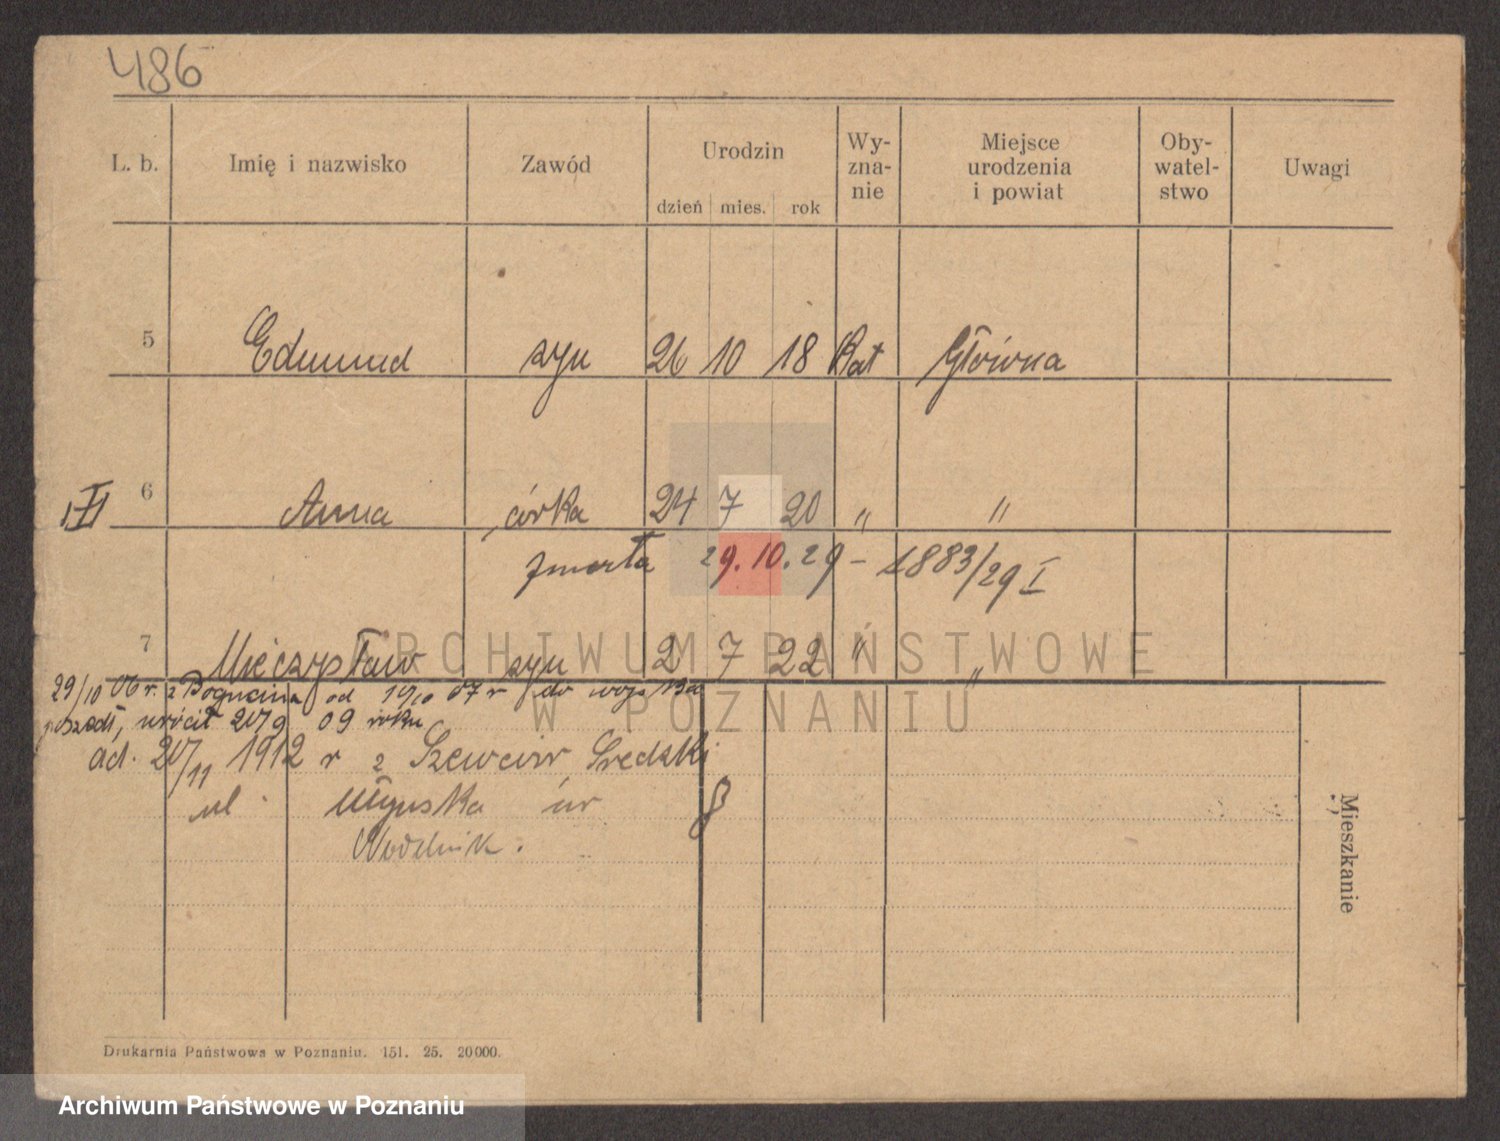 486
L. b. Imię i nazwisko Zawód Urodzin Wy-zna-nie Miejsce urodzenia i powiat Oby-watel-stwo Uwagi
dzień mies. rok
5 Edmund syn 26 10 18 Kat Główna
6 Anna córka 24 7 20 " "
zmarła 29.10.29 – 1883/29 I
7 Mieczysław syn 2 7 22 " "
29/10 06 r. z Bogucina od 19/10 07 r do wojska
poszedł, wrócił 20/9 09 roku
od. 20/11 1912 r z Szewców Średzki
ul. Młyńska nr 8
Mieszkanie
Drukarnia Państwowa w Poznaniu. 151. 25. 20 000.
ARCHIWUM PAŃSTWOWE
W POZNANIU
Archiwum Państwowe w Poznaniu